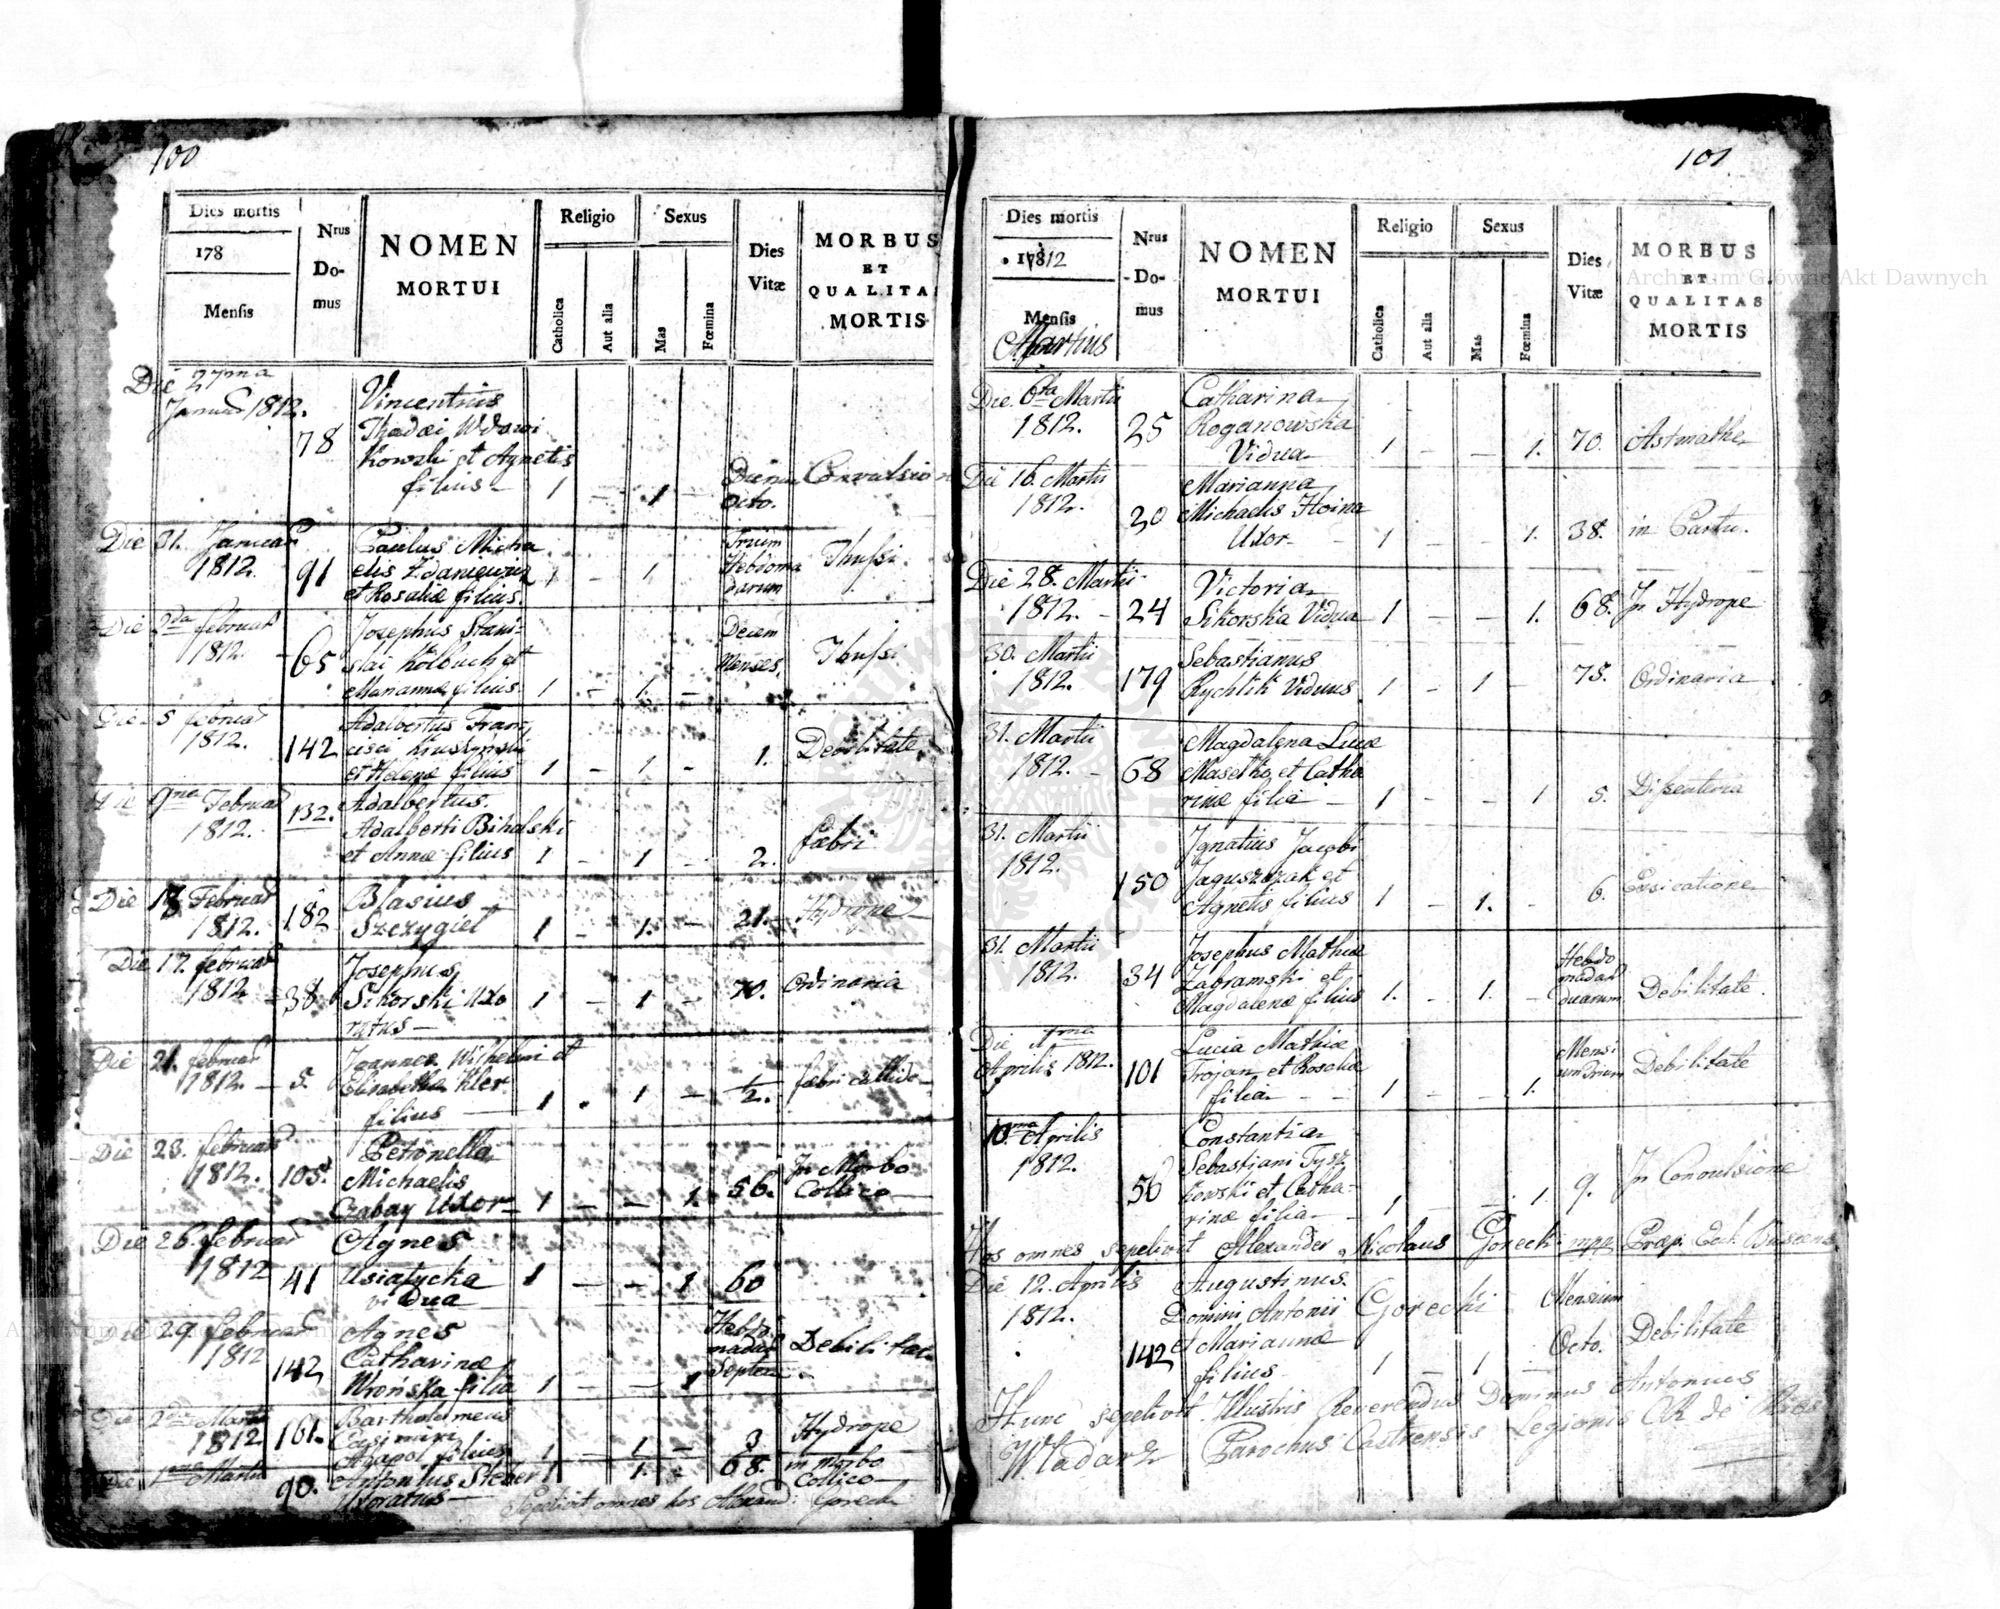 100
Dies mortis
178
Mensis
Nrus
Do-
mus
NOMEN
MORTUI
Religio
Catholica
Aut alia
Sexus
Mas
Fœmina
Dies
Vitæ
MORBUS
ET
QUALITAS
MORTIS
Die 27ma
Januar 1812.
78
Vincentius
Thadæi Wdowi
kowski et Agnetis
filius
1 – 1 –
Octo.
Die 31. Januar
1812.
91
Paulus Micha
elis
et Rosaliæ filius.
1 – 1
Trium
Hebdoma
darum
Thussi
Die 2da Februar
1812.
65
Josephus Stani-
slai Kolbuch et
Mariannæ filius.
1 – 1. –
Decem
Menses.
Thussi
Die 5 Februar
1812.
142
Adalbertus Fran
cisci
et Helenæ filius
1 – 1 –
1.
Debilitate
Die 9na Februar
1812.
132.
Adalbertus
Adalberti Bihalski
et Annæ filius
1 – 1 –
2.
Febri
Die 13 Februar
1812.
182
Blasius
Szczygieł
1 – 1. –
21.
Hydrope
Die 17. Februar
1812
38
Josephus
Sikorski Uxo
ratus
1 – 1 –
70.
Ordinaria
Die 21. Februar
1812. –
5.
Joannes Wilhelmi et
Elisabethæ Kler
filius
1 . 1 –
1/2.
Febri callida
Die 23. Februar
1812.
105.
Petronella
Michaelis
Gabay Uxor
1 – – 1.
56.
In Morbo
Collico
Die 26. Februar
1812
41
Agnes
Usiatycka
vidua
1 – – 1
60
Die 29 Februar
1812
142
Agnes
Catharinæ
Wrońska filia
1 – – 1
Hebdo
madar
Septem
Debilitate
Die 2da Martii
1812
161.
Bartholomeus
Casimiri
filius
1 – 1 –
3
Hydrope
Die 1ma Martii
90.
Antonius
Uxoratus
1 1. –
68.
in morbo
Collico
Sepelivit omnes hos Alexand: Gorecki
101.
Dies mortis
1812
Mensis
Martius
Nrus
Do-
mus
NOMEN
MORTUI
Religio
Catholica
Aut alia
Sexus
Mas
Fœmina
Dies
Vitæ
MORBUS
ET
QUALITAS
MORTIS
Die 6ta Martii
1812.
25
Catharina
Roganowska
Vidua
1 – – 1.
70.
Astmathe
Die 16. Martii
1812.
20
Marianna
Michaelis Hoina
Uxor
1 – – 1.
38.
in Partu.
Die 28. Martii
1812. –
24
Victoria
Sikorska Vidua
1 – – 1.
68.
In Hydrope
30. Martii
1812.
179
Sebastianus
Rychlik Viduus
1 – 1 –
75.
Ordinaria
31. Martii
1812. –
68
Magdalena Lucæ
Masetko et Catha
rinæ filia
1 – – 1
5.
Dissenteria
31. Martii
1812.
150
Ignatius Jacobi
Jaguszczak et
Agnetis filius
1 – 1. –
6.
Exsicatione
31. Martii
1812.
34
Josephus Mathiæ
Zabramski et
Magdalenæ filius
1. – 1. –
Hebdo
madar
duarum
Debilitate.
Die 1ma
Aprilis 1812.
101
Lucia Mathiæ
Trojan et Rosaliæ
filia
1 – – 1.
Mensi
um Trium
Debilitate
10.ma Aprilis
1812.
56
Constantia
Sebastiani Tysz
kowski et Catha-
rinæ filia
1 1.
9.
In Convulsione
Hos omnes sepelivit Alexander Nicolaus Gorecki mpp
Die 12. Aprilis
1812.
142
Augustinus
Domini Antonii Gorecki
et Mariannæ
filius
1 – 1 –
Mensium
Octo.
Debilitate
Hunc sepelivit Illustris Reverendus Dominus Antonius
Wladarz Parochus Castrensis Legionis
Archiwum Główne Akt Dawnych